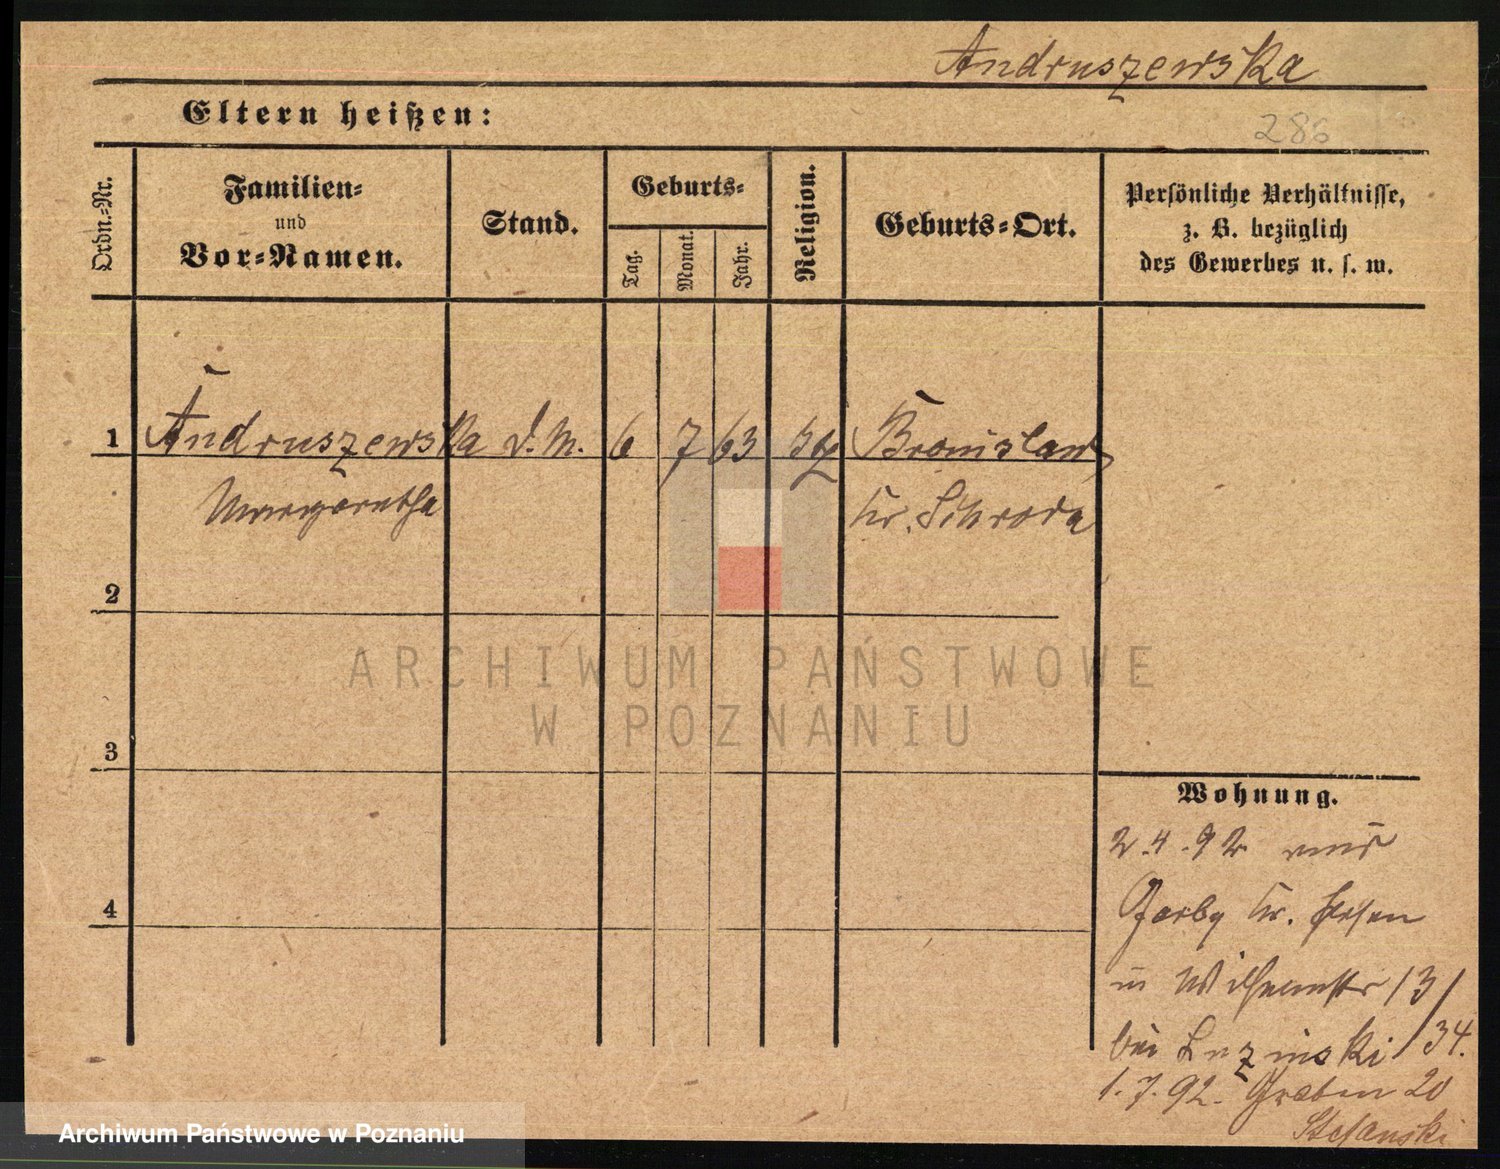 Andruszewska
Eltern heißen:
286
Ordn.-Nr.
Familien-
und
Vor-Namen.
Stand.
Geburts-
Tag.
Monat.
Jahr.
Religion.
Geburts-Ort.
Persönliche Verhältnisse,
z. B. bezüglich
des Gewerbes u. s. w.
1 Andruszewska D.M. 6 7 63 Bronislaw
Margaretha Kr. Schroda
2
3
4
Wohnung.
2.4.92 aus
Garby Kr. Posen
in Wilhelmstr
bei
1.7.92. Graben 20
Stefanski
ARCHIWUM PAŃSTWOWE
W POZNANIU
Archiwum Państwowe w Poznaniu